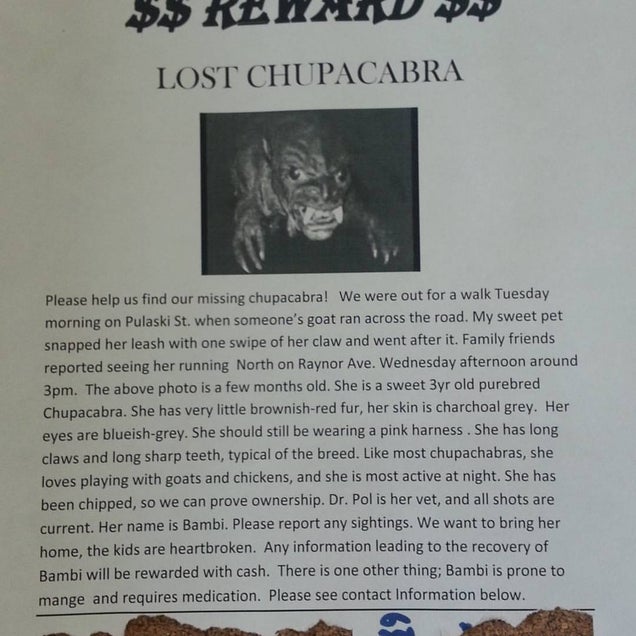 $$ REWARD $$
LOST CHUPACABRA
Please help us find our missing chupacabra!   We were out for a walk Tuesday
morning on Pulaski St. when someone's goat ran across the road. My sweet pet
snapped her leash with one swipe of her claw and went after it. Family friends
reported seeing her running  North on Raynor Ave. Wednesday afternoon around
3pm.  The above photo is a few months old. She is a sweet 3yr old purebred
Chupacabra. She has very little brownish-red fur, her skin is charchoal grey.  Her
eyes are blueish-grey. She should still be wearing a pink harness . She has long
claws and long sharp teeth, typical of the breed. Like most chupachabras, she
loves playing with goats and chickens, and she is most active at night. She has
been chipped, so we can prove ownership. Dr. Pol is her vet, and all shots are
current. Her name is Bambi. Please report any sightings. We want to bring her
home, the kids are heartbroken.  Any information leading to the recovery of
Bambi will be rewarded with cash.  There is one other thing; Bambi is prone to
mange  and requires medication.  Please see contact Information below.